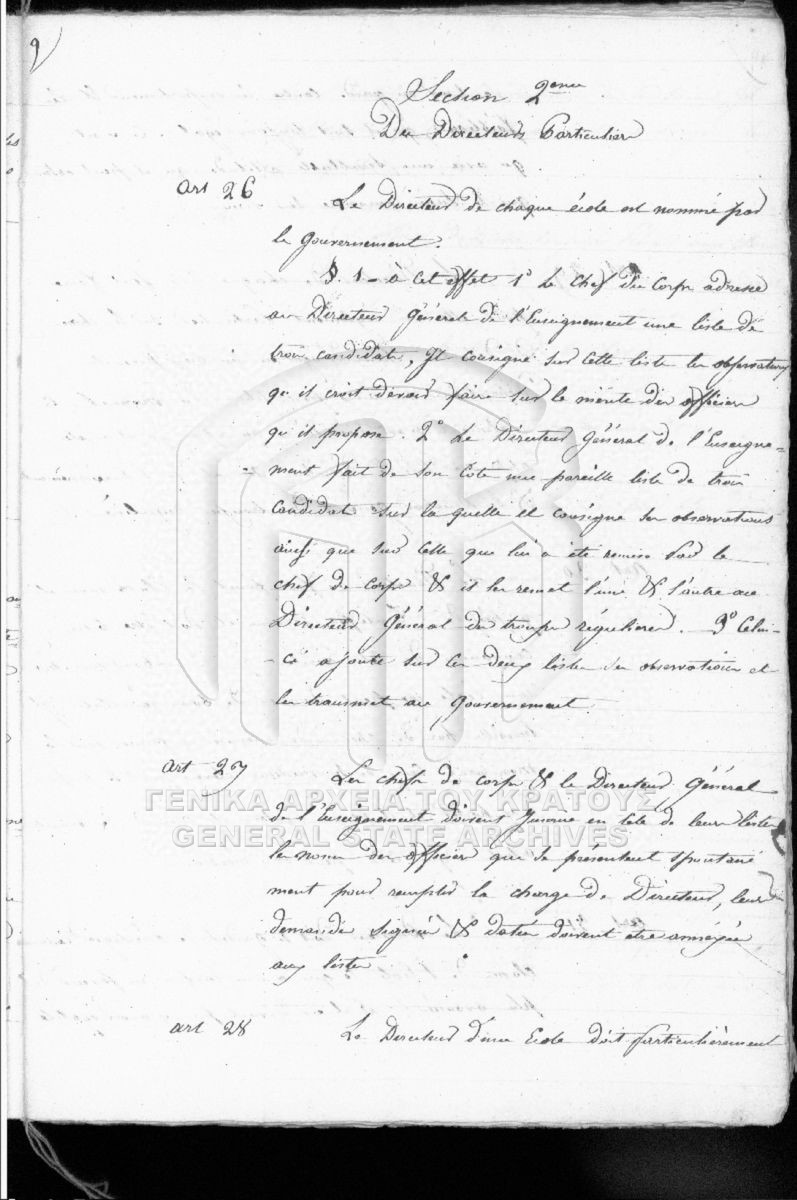 Section 2eme
Des Directeurs Particuliers
art 26
Le Directeur de chaque école est nommé par
le gouvernement.
§. 1 - à cet effet 1° Le Chef du Corps adresse
au Directeur Général de l'Enseignement une liste de
trois candidats, Il consigne sur cette liste les observations
qu'il croit devoir faire sur le mérite des officiers
qu'il propose. 2° Le Directeur Général de l'Enseigne-
- ment fait de son Coté une pareille liste de trois
Candidats sur la quelle il consigne ses observations
ainsi que sur Celle que lui a été remise Par le
chef de corps & il les remet l'une & l'autre au
Directeur Général des troupes régulieres. 3° Celui-
- ci ajoute sur Ces deux listes ses observations et
les transmet au gouvernement.
art 27
Les chefs de corps & le Directeur Général
de l'Enseignement doivent en tete de leurs listes
les noms des officiers que se présentent spontané
ment pour remplir la charge de Directeur, leurs
demandes signées & datées doivent etre annexées
aux listes
art 28
Le Directeur d'une Ecole doit particulièrement
ΓΕΝΙΚΑ ΑΡΧΕΙΑ ΤΟΥ ΚΡΑΤΟΥΣ
GENERAL STATE ARCHIVES